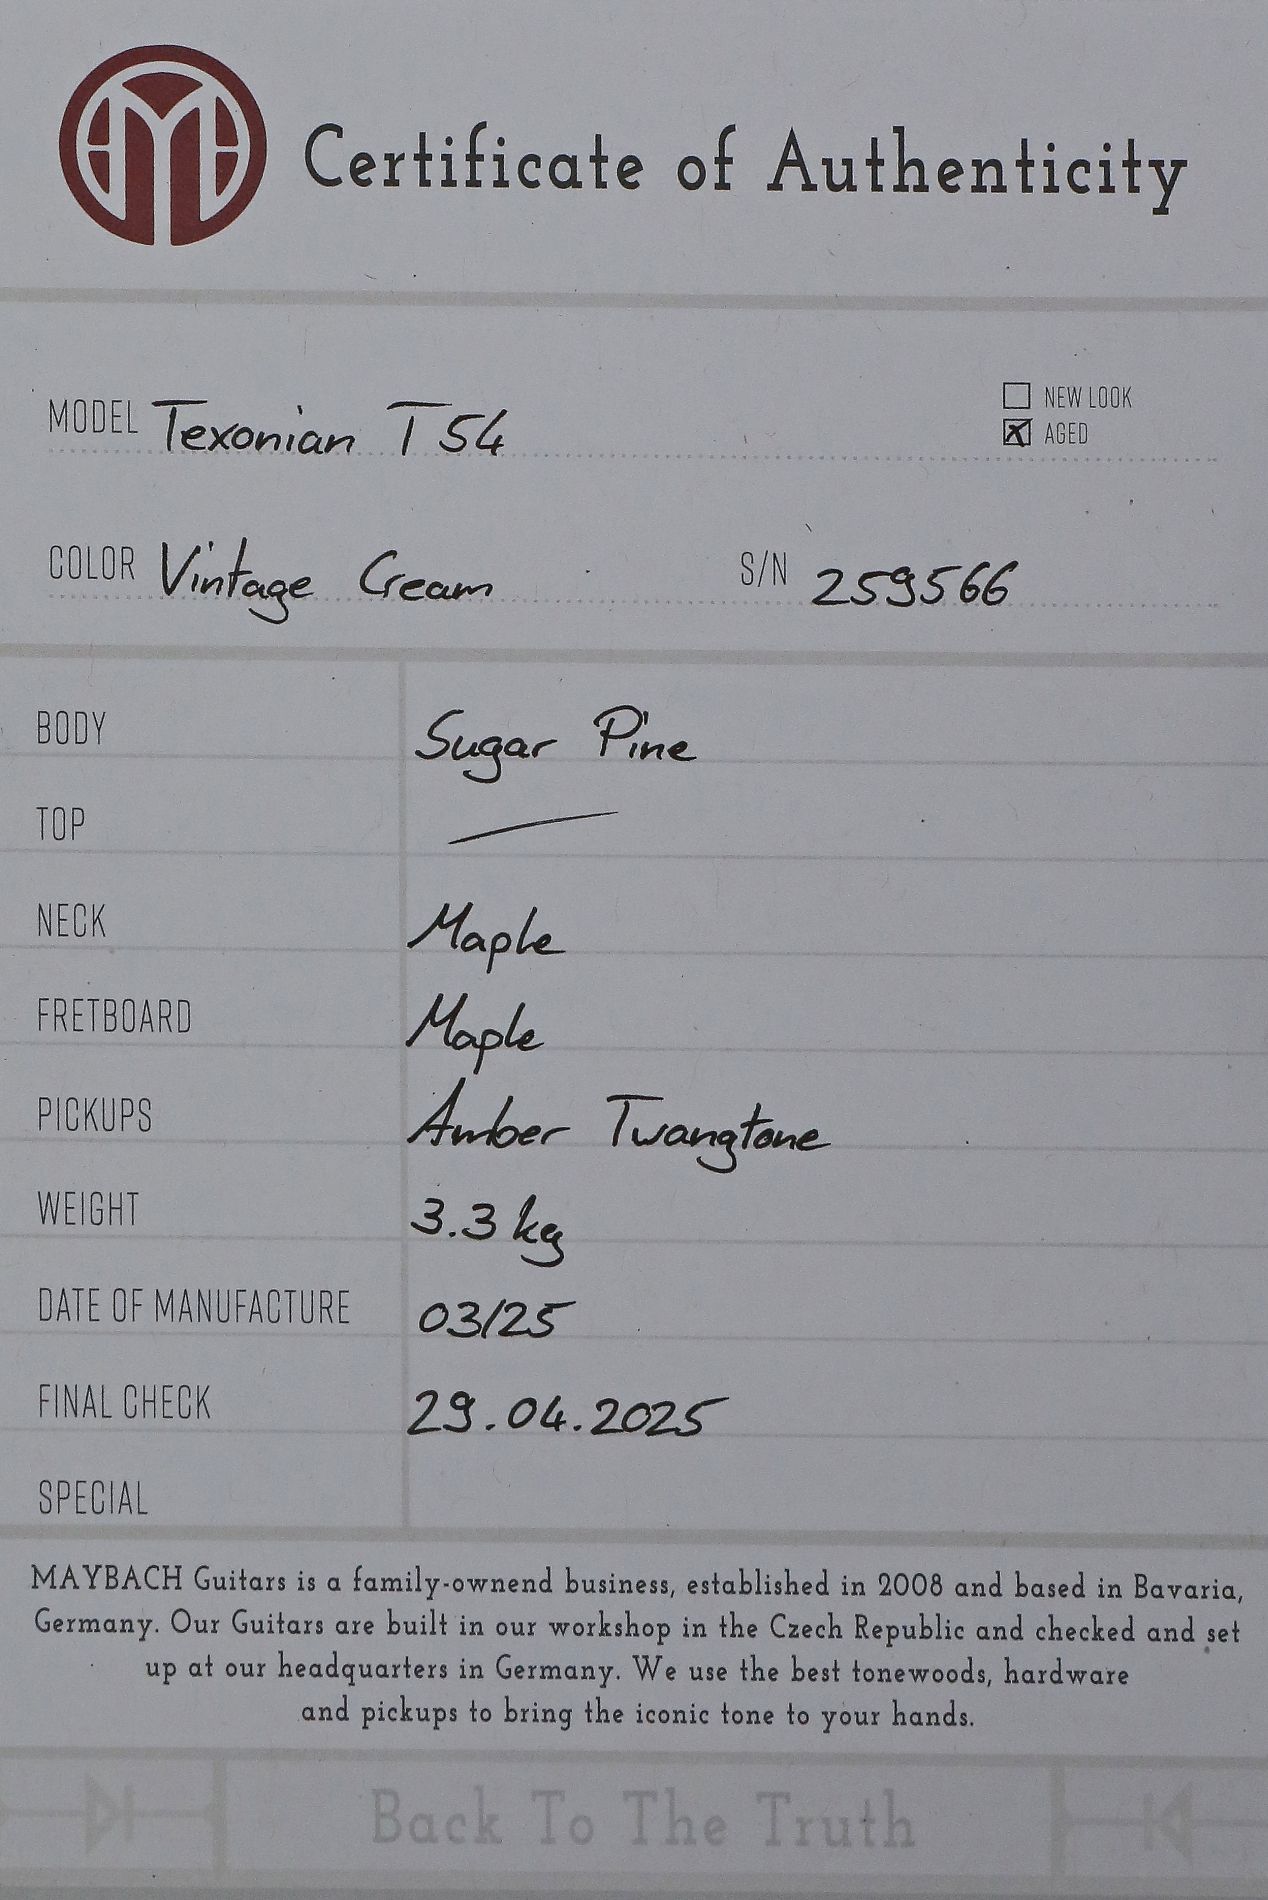 Certificate of Authenticity
MODEL Texonian T54
NEW LOOK
AGED
COLOR Vintage Cream S/N 259566
BODY Sugar Pine
TOP
NECK Maple
FRETBOARD Maple
PICKUPS Amber Twangtone
WEIGHT 3.3 kg
DATE OF MANUFACTURE 03/25
FINAL CHECK 29.04.2025
SPECIAL
MAYBACH Guitars is a family-ownend business, established in 2008 and based in Bavaria,
Germany. Our Guitars are built in our workshop in the Czech Republic and checked and set
up at our headquarters in Germany. We use the best tonewoods, hardware
and pickups to bring the iconic tone to your hands.
Back To The Truth